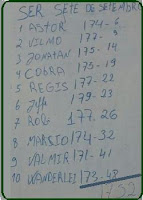 SER SETE DE SETEMBRO
1 ASTOR 174-6
2 VILMO 177-8
3 JONATAN 175-14
4 COBRA 175-19
5 REGIS 177-22
6 179-23
7 177-26
8 MARSIO 174-32
9 VALMIR 171-41
10 WANDERLEI 173-48
1752